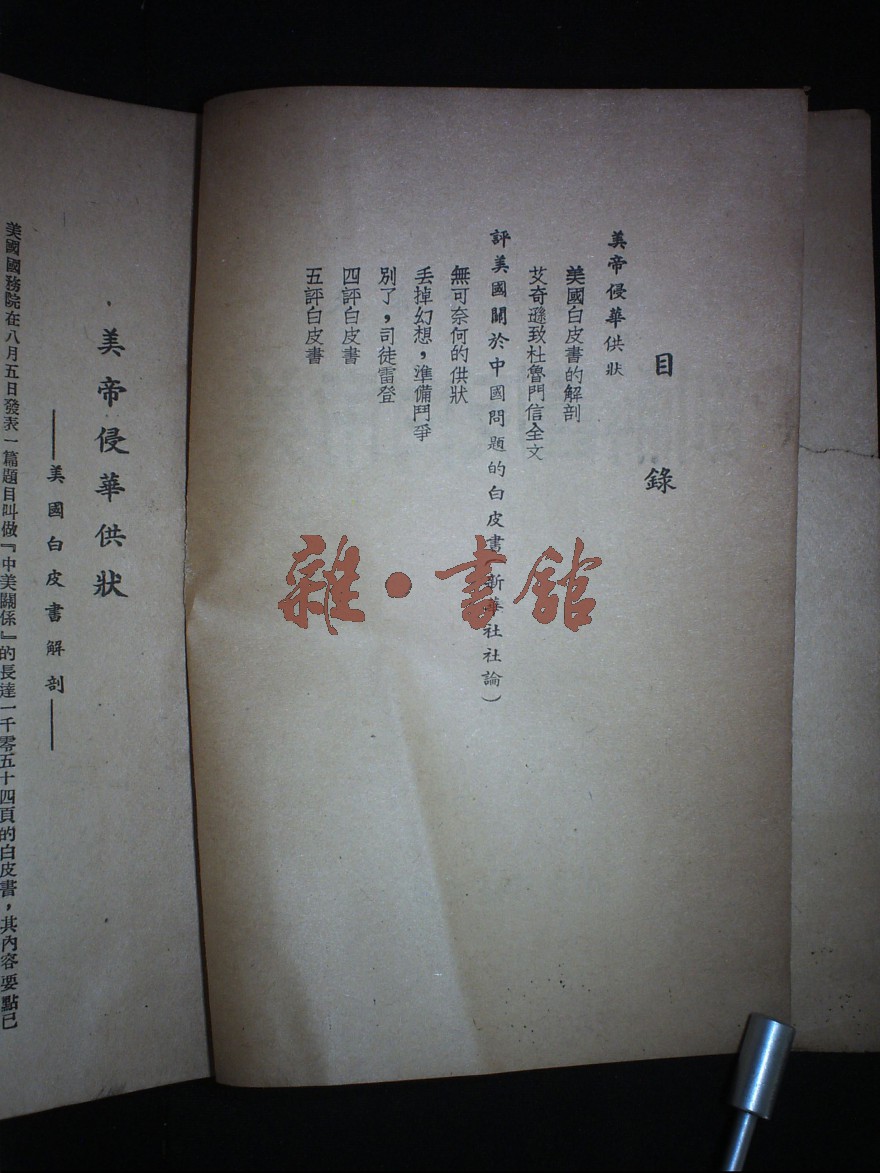 目錄
美帝侵華供狀
美國白皮書的解剖
艾奇遜致杜魯門信全文
評美國關於中國問題的白皮書(新華社社論)
無可奈何的供狀
丟掉幻想,準備鬥爭
別了,司徒雷登
四評白皮書
五評白皮書
美帝侵華供狀
——美國白皮書解剖——
美國國務院在八月五日發表一篇題目叫做『中美關係』的長達一千零五十四頁的白皮書,其內容要點已
雜·書館